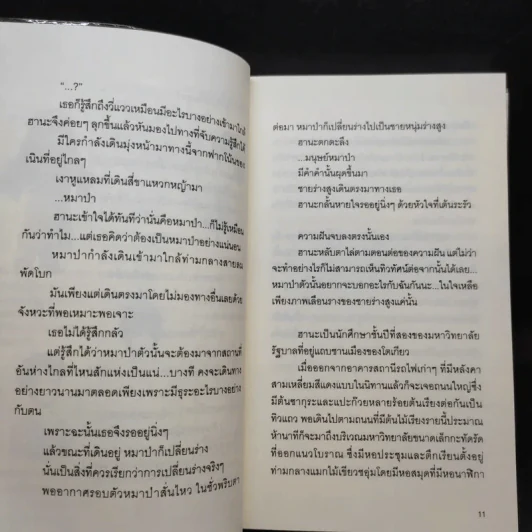 "...?"
เธอก็รู้สึกถึงวี่แววเหมือนมีอะไรบางอย่างเข้ามาใกล้
ฮานะจึงค่อยๆ ลุกขึ้นแล้วหันมองไปทางที่จับความรู้สึกได้
มีใครกำลังเดินมุ่งหน้ามาทางนี้จากฟากโน้นของ
เนินที่อยู่ใกลๆ
เงาหูแหลมที่เดินสี่ขาแหวกหญ้ามา
...หมาป่า
ฮานะเข้าใจได้ทันทีว่านั่นคือหมาป่า...ก็ไม่รู้เหมือน
กันว่าทำไม...แต่เธอคิดว่าต้องเป็นหมาป่าอย่างแน่นอน
หมาป่ากำลังเดินเข้ามาใกล้ท่ามกลางสายลม
พัดโบก
มันเพียงแต่เดินตรงมาโดยไม่มองทางอื่นเลยด้วย
จังหวะที่พอเหมาะพอเจาะ
เธอไม่ได้รู้สึกกลัว
แต่รู้สึกได้ว่าหมาป่าตัวนั้นจะต้องมาจากสถานที่
อันห่างไกลที่ไหนสักแห่งเป็นแน่...บางที คงจะเดินทาง
อย่างยาวนานมาตลอดเพียงเพราะมีธุระอะไรบางอย่าง
กับตน
เพราะฉะนั้นเธอจึงรออยู่นิ่งๆ
แล้วขณะที่เดินอยู่ หมาป่าก็เปลี่ยนร่าง
นั่นเป็นสิ่งที่ควรเรียกว่าการเปลี่ยนร่างจริงๆ
พออากาศรอบตัวหมาป่าสั่นไหว ในชั่วพริบตา
ต่อมา หมาป่าก็เปลี่ยนร่างไปเป็นชายหนุ่มร่างสูง
ฮานะตกตะลึง
...มนุษย์หมาป่า
มีคำคำนั้นผุดขึ้นมา
ชายร่างสูงเดินตรงมาทางเธอ
ฮานะกลั้นหายใจรออยู่นิ่งๆ ด้วยหัวใจที่เต้นระรัว
ความฝันจบลงตรงนั้นเอง
ฮานะหลับตาไล่ตามตอนต่อของความฝัน แต่ไม่ว่า
จะทำอย่างไรก็ไม่สามารถเห็นทิวทัศน์ต่อจากนั้นได้เลย...
หมาป่าตัวนั้นอยากจะบอกอะไรกับฉันกันนะ...ในใจเหลือ
เพียงภาพเลือนรางของชายร่างสูงแค่นั้น
ฮานะเป็นนักศึกษาชั้นปีที่สองของมหาวิทยาลัย
รัฐบาลที่อยู่แถบชานเมืองของโตเกียว
เมื่อออกจากอาคารสถานีรถไฟเก่าๆ ที่มีหลังคา
สามเหลี่ยมสีแดงแบบในนิทานแล้วก็จะเจอถนนใหญ่ซึ่ง
มีต้นซากุระและแปะก๊วยหลายร้อยต้นเรียงต่อกันเป็น
ทิวแถว พอเดินไปตามถนนที่มีต้นไม้เรียงรายนี้ประมาณ
ห้านาทีก็จะมาถึงบริเวณมหาวิทยาลัยขนาดเล็กกะทัดรัด
ที่ออกแนวโบราณ ซึ่งมีหอประชุมและตึกเรียนตั้งอยู่
ท่ามกลางแมกไม้เขียวชอุ่มโดยมีหอสมุดที่มีหอนาฬิกา
11